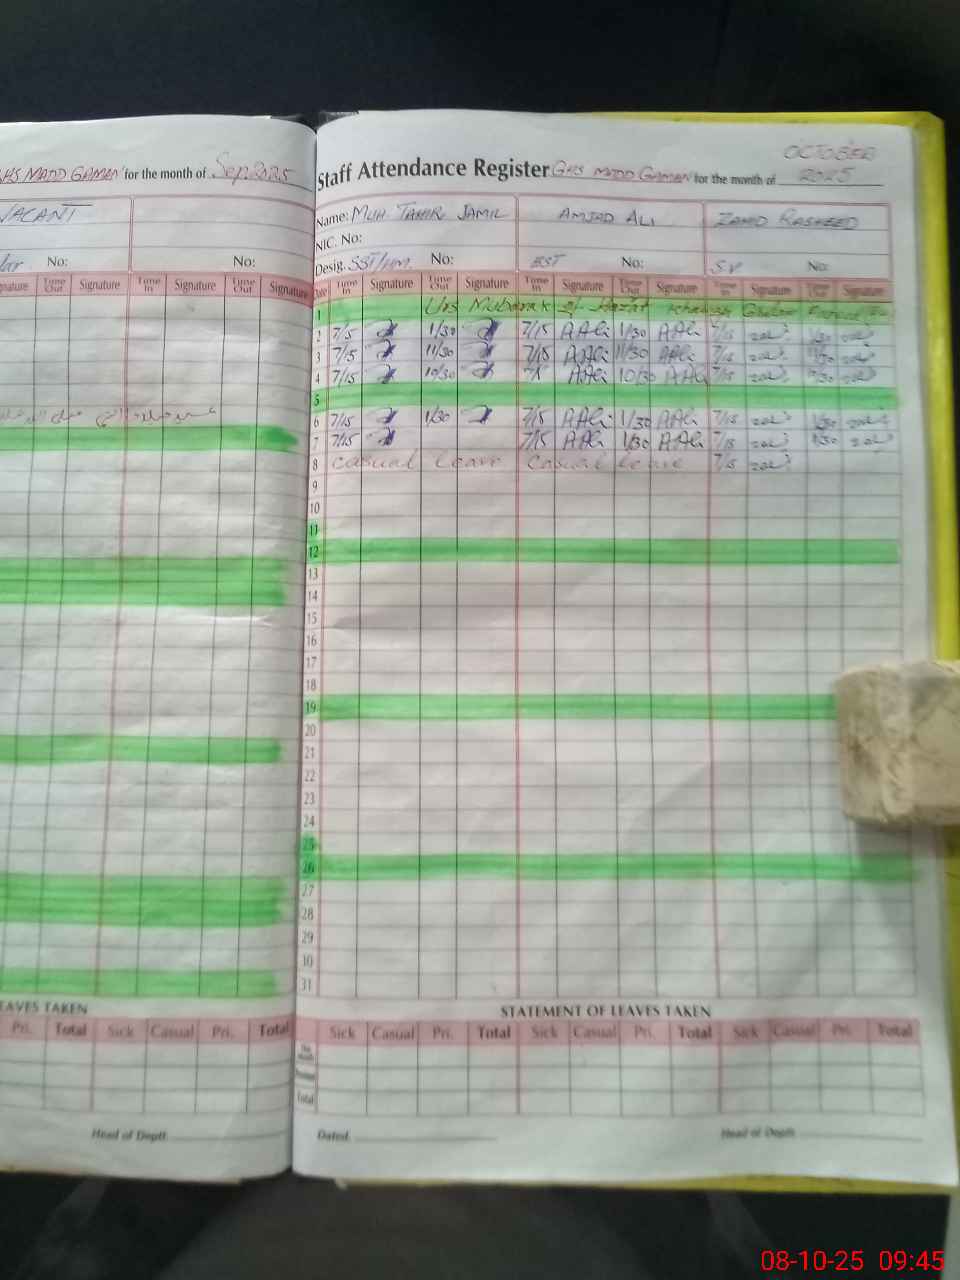 GHS MADD GAMAN for the month of Sep 2025
VACANT
No: No:
Signature Time Out Signature Time In Signature Time Out Signature
LEAVES TAKEN
Pri. Total Sick Casual Pri. Total
Head of Deptt
Staff Attendance Register GHS MADD GAMAN for the month of OCTOBER 2025
Name: MUH. TAHIR JAMIL AMJAD ALI ZAHID RASHEED
NIC. No:
Desig. SST/HM. No: EST No: S.V No:
Date Time In Signature Time Out Signature Time In Signature Time Out Signature Time In Signature Time Out Signature
1 Urs Mubarak of Hazrat Khawaja Ghulam Farid
2 7/15 1/30 7/15 AAli 1/30 AAli 7/15 1/30
3 7/15 11/30 7/15 AAli 11/30 AAli 7/15 11/30
4 7/15 10/30 AAli 10/30 AAli 7/15 10/30
5
6 7/15 1/30 7/15 AAli 1/30 AAli 7/15 1/30
7 7/15 7/15 AAli 1/30 AAli 7/15 1/30
8 Casual leave Casual leave 7/15
9
10
11
12
13
14
15
16
17
18
19
20
21
22
23
24
25
26
27
28
29
30
31
STATEMENT OF LEAVES TAKEN
Sick Casual Pri. Total Sick Casual Pri. Total Sick Casual Pri. Total
Total
Dated. Head of Deptt.
08-10-25 09:45